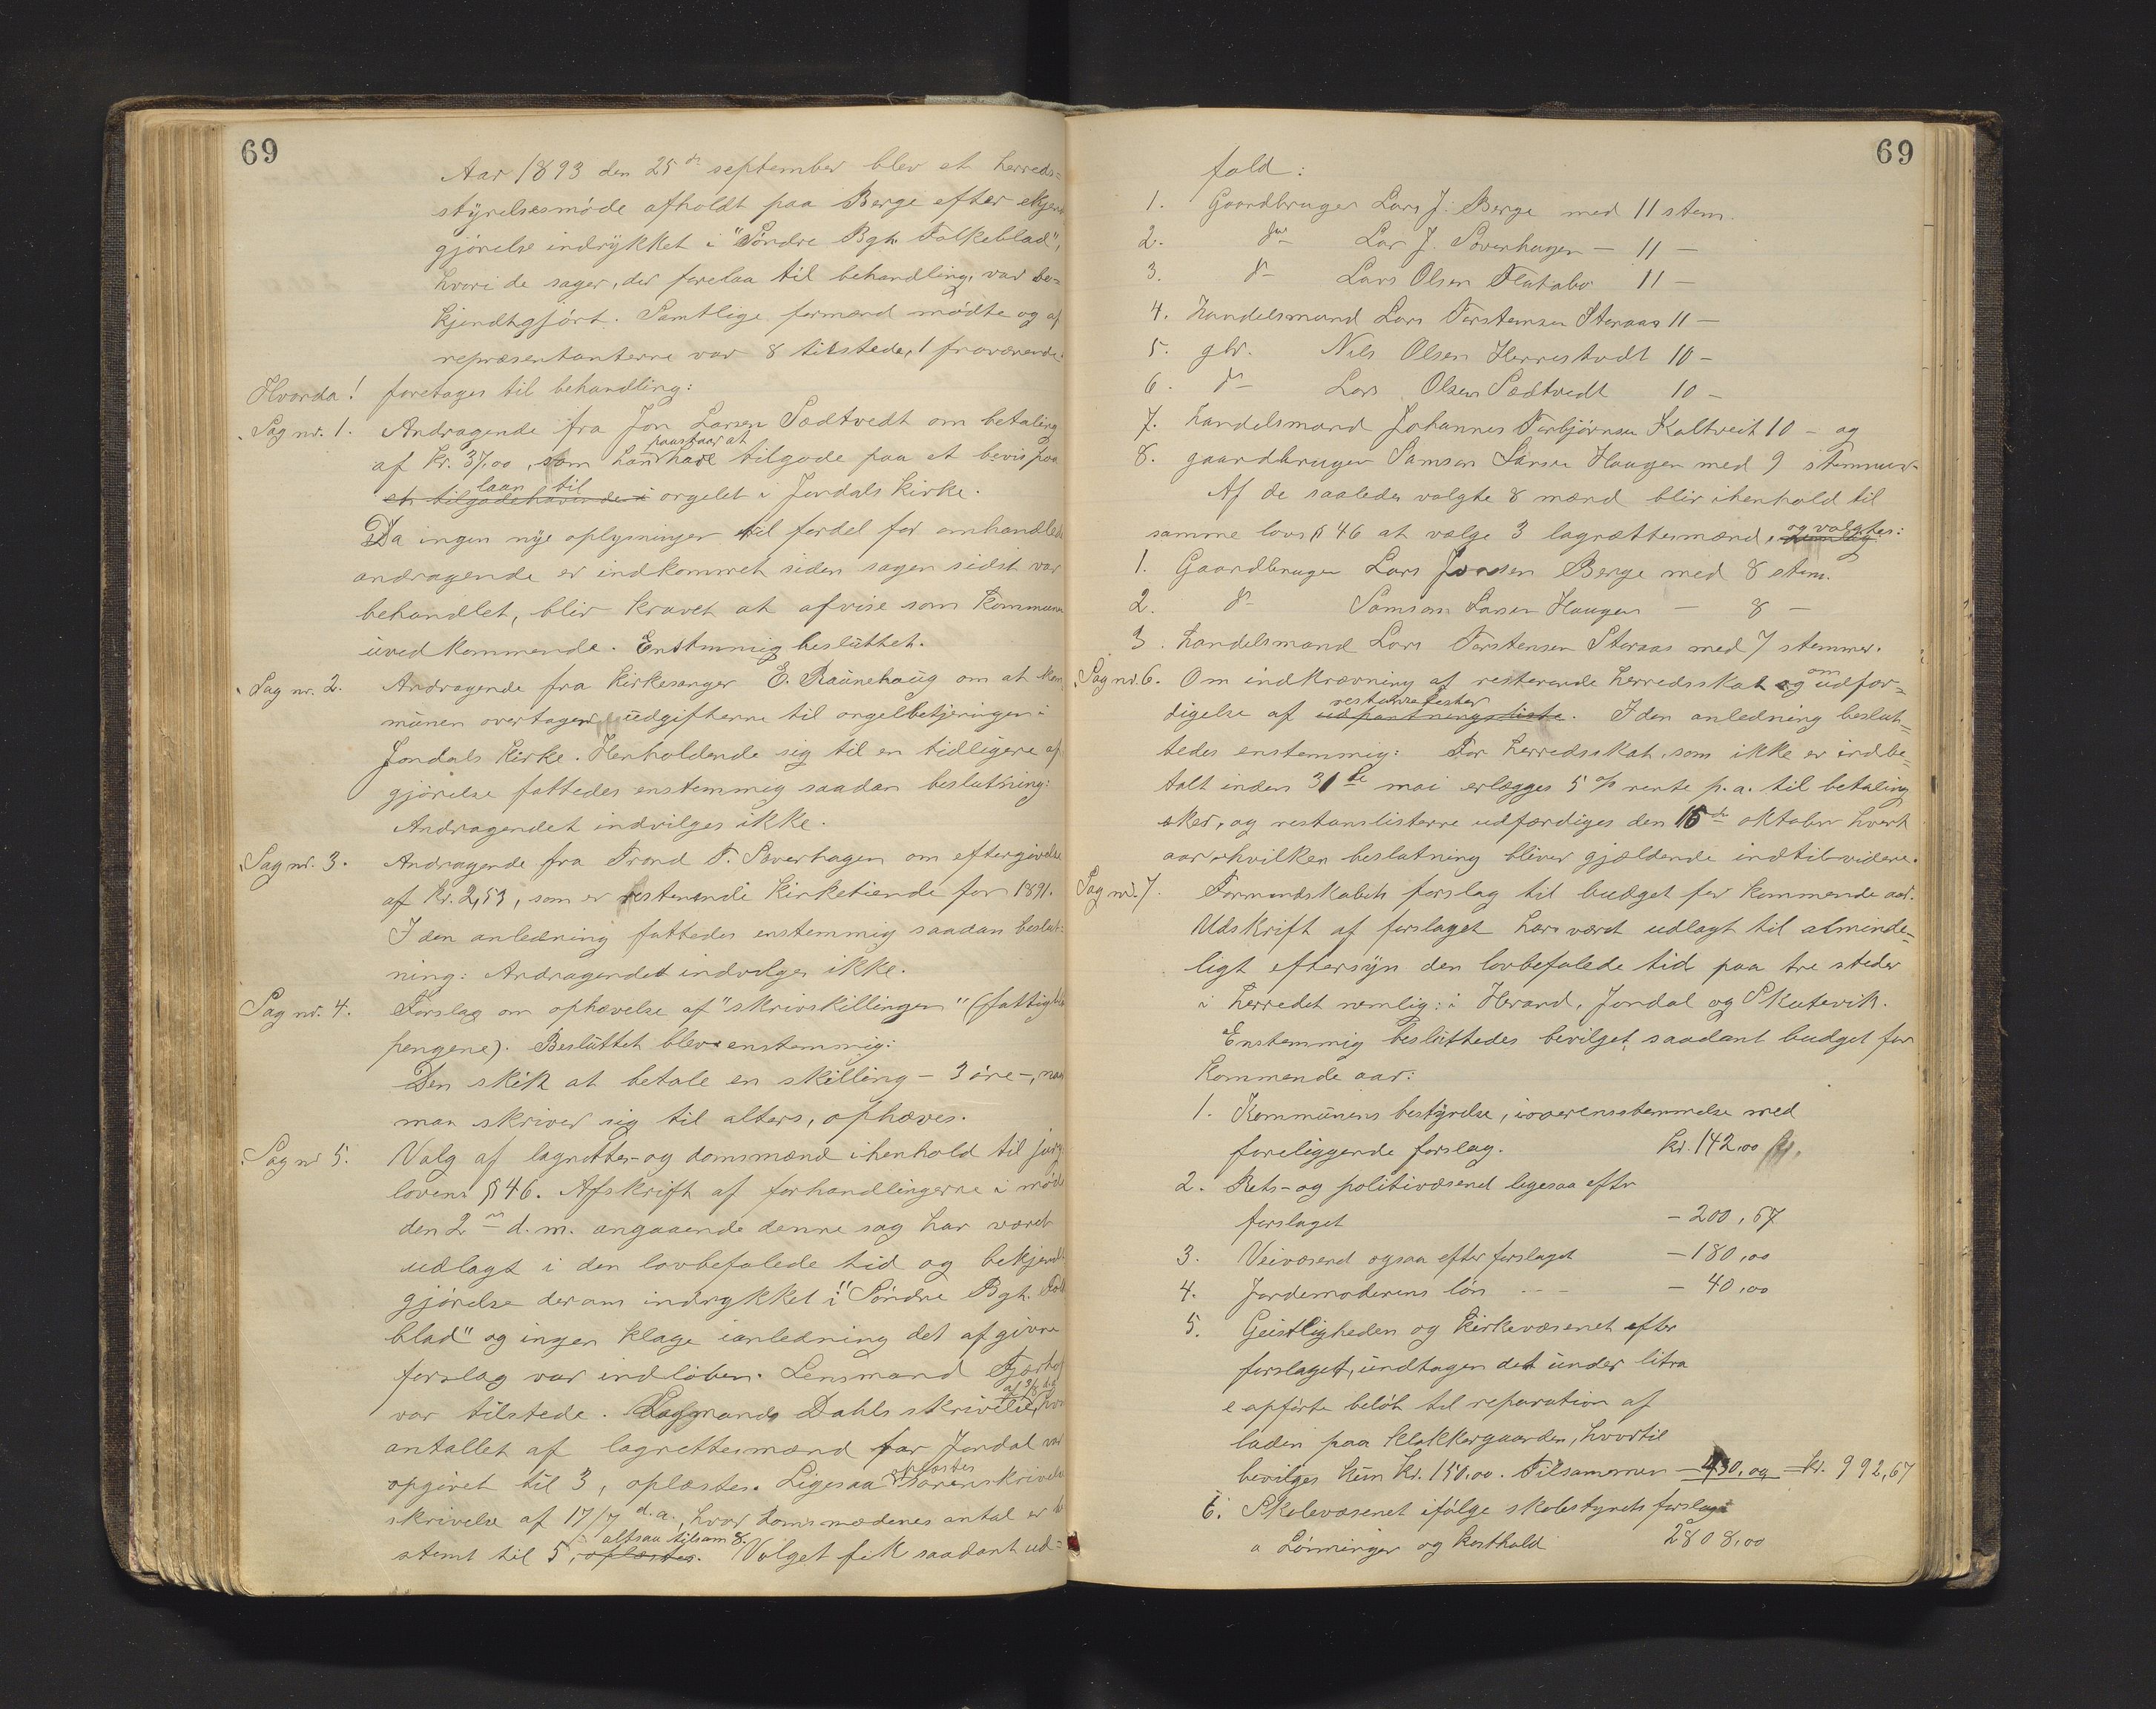 69
Aar 1893 den 25de september blev et herreds=
styrelsesmöde afholdt paa Berge efter
gjörelse indrykket i "Söndre Bgh. Folkeblad",
hvori de sager, der forelaa til behandling, var be=
kjendtgjört. Samtlige formænd mödte og af
repræsentanterne var 8 tilstede, 1 fraværende.
Hvorda! foretages til behandling:
Sag nr. 1. Andragende fra Jon Larsen Sædtvedt om betaling
paastaar at
af kr. 37,00, som han have tilgode paa et bevis paa
laan til
et tilgodehavende i orgelet i Jondals kirke.
Da ingen nye oplysninger til fordel for omhandlede
andragende er indkommet siden sagen sidst var
behandlet, blir kravet at afvise som kommunen
uvedkommende. Enstemmig besluttet.
Sag nr. 2. Andragende fra kirkesanger E. Raunehaug om at kom=
munen overtager udgifterne til orgelbetjeningen i
Jondals kirke. Henholdende sig til en tidligere af=
gjörelse fattedes enstemmig saadan beslutning:
Andragendet indvilges ikke.
Sag nr. 3. Andragende fra Trond T. Soverhagen om eftergivelse
af kr. 2,53, som er resterende kirketiende for 1891.
I den anledning fattedes enstemmig saadan beslut=
ning: Andragendet indvilges ikke.
Sag nr. 4. Forslag om ophævelse af "skrivskillingen" (fattig
pengene). Besluttet blev enstemmig:
Den skik at betale en skilling - 3 öre -, naar
man skriver sig til alters, ophæves.
Sag nr 5. Valg af lagrettes- og domsmænd ihenhold til jury
lovens § 46. Afskrift af forhandlingerne i möde
den 2den d. m. angaaende denne sag har været
udlagt i den lovbefalede tid og bekjendt
gjörelse derom indrykket i "Söndre Bgh. Folke
blad" og ingen klage ianledning det afgivne
forslag var indlöben. Lensmand
var tilstede. Lagmands Dahls skrivelse, hvor
antallet af lagrettesmænd for Jondal var
oplæstes
opgivet til 3, oplæstes. Ligesaa Sorenskriverens
skrivelse af 17/7 d.a., hvor domsmædenes antal er be
altsaa tilsam 8.
stemt til 5, oplæstes. Valget fik saadant ud=
69
fald:
1. Gaardbruger Lars J. Berge med 11 stem.
2. do Lar J. Soverhagen - 11 -
3. do Lars Olsen Flatabø 11 -
4. Handelsmand Lars Torstensen Steraas 11 -
5. gbr. Nils Olsen Herrestvedt 10 -
6. do Lars Olsen Sædtvedt 10 -
7. handelsmand Johannes Torbjörnsen Koltveit 10 - og
8. gaardbruger Samson Larsen Haugen med 9 stemmer.
Af de saaledes valgte 8 mænd blir ihenhold til
og valgtes:
samme lovs § 46 at vælge 3 lagrættesmænd,
1. Gaardbruger Lars Jonsen Berge med 8 stem.
2. do Samson Larsen Haugen - 8 -
3. handelsmand Lars Torstensen Steraas med 7 stemmer.
om
Sag nr. 6. Om indkrævning af resterende herredsskat og udfær=
restanselister
digelse af udpantningsliste. I den anledning beslut=
tedes enstemmig: For herredsskat, som ikke er indbe=
talt inden 31te mai erlægges 5 % rente p. a. til betaling
sker, og restanslisterne udfærdiges den 15de oktober hvert
aar hvilken beslutning bliver gjældende indtil videre.
Sag nr. 7. Formandskabets forslag til budget for kommende aar.
Udskrift af forslaget har været udlagt til alminde=
ligt eftersyn den lovbefalede tid paa tre steder
i herredet nemlig: i Herand, Jondal og Skutevik.
Enstemmig besluttedes bevilget saadant budget for
kommende aar:
1. Kommunens bestyrelse, ioverensstemmelse med
foreliggende forslag. kr. 142,00
2. Rets- og politivæsend ligesaa efter
forslaget - 200,67
3. Veivæsend ogsaa efter forslaget - 180,00
4. Jordemoderens lön - - - - 40,00
5. Geistligheden og kirkevæsenet efter
forslaget, undtagen det under litra
e opförte belöb til reparation af
laden paa klokkergaarden, hvortil
bevilges kun kr. 150,00. Tilsammen - 430,00 = kr. 992,67
6. Skolevæsenet ifölge skolestyrets forslag
a Lönninger og kosthold 2808,00